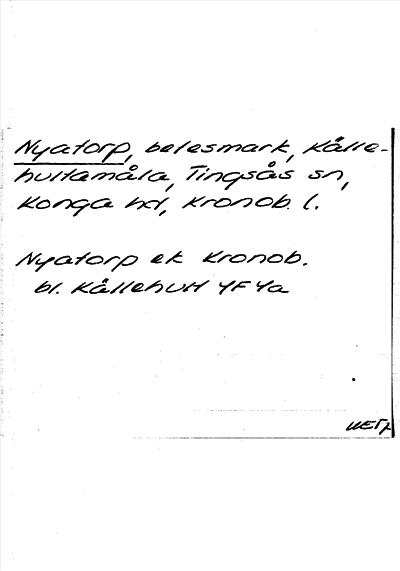 Nyatorp, belesmark, Källe-
hultamåla, Tingsås sn,
Konga hd, Kronob. l.
Nyatorp ek Kronob.
bl. Källehult 4F4a